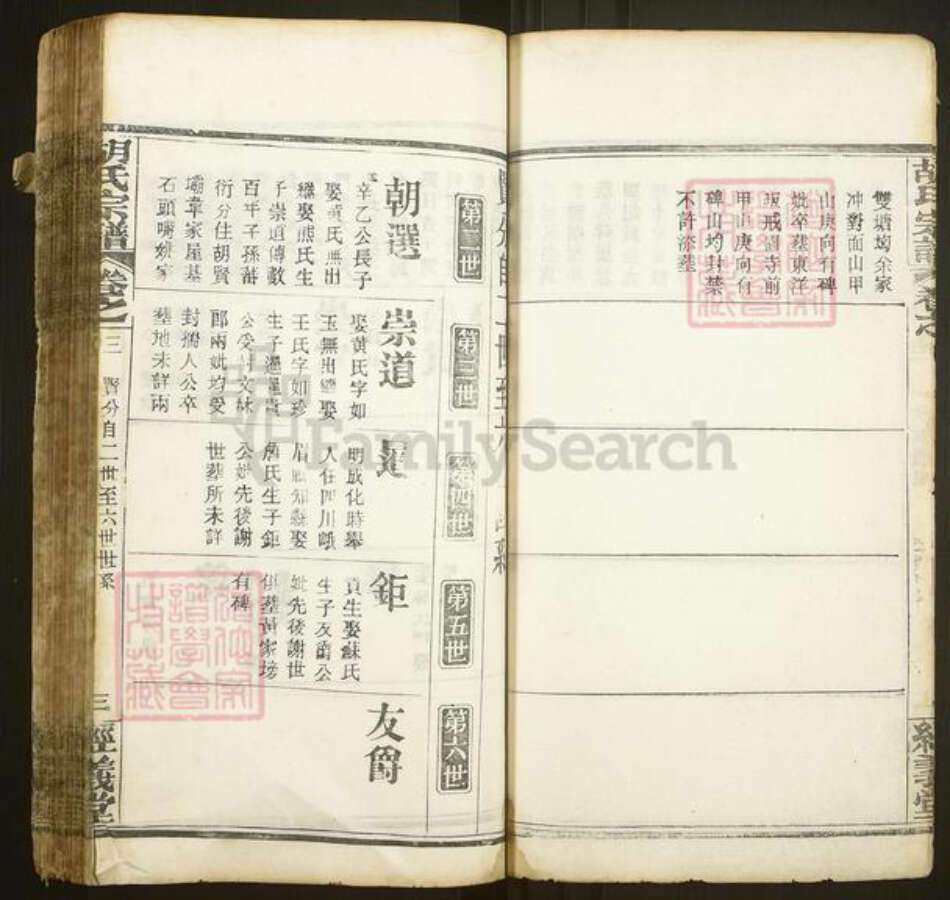 雙塘坳余家
冲對面山甲
山庚向有碑
妣卒塟東洋
坂戒眉寺前
甲山庚向有
碑山均封禁
不許添塟
經義堂
第二世
第三世
第四世
第五世
第六世
朝選
辛乙公長子
娶黃氏無出
繼娶熊氏生
子崇道傳數
百年子孫蕃
衍分住胡賢
壩韋家屋基
石頭嘴姚家
崇道
娶黃氏字如
玉無出繼娶
王氏字如珍
生子暹暹貴
公受封文林
郎兩妣均受
封孺人公卒
塟地未詳兩
暹
明成化時舉
人任四川峨
眉縣知縣娶
詹氏生子鉅
公妣先後謝
世塟所未詳
鉅
貢生娶蘇氏
生子友爵公
妣先後謝世
俱塟黃家塝
有碑
友爵
胡氏宗譜
卷之三
賢分自二世至六世世系
三
經義堂
FamilySearch